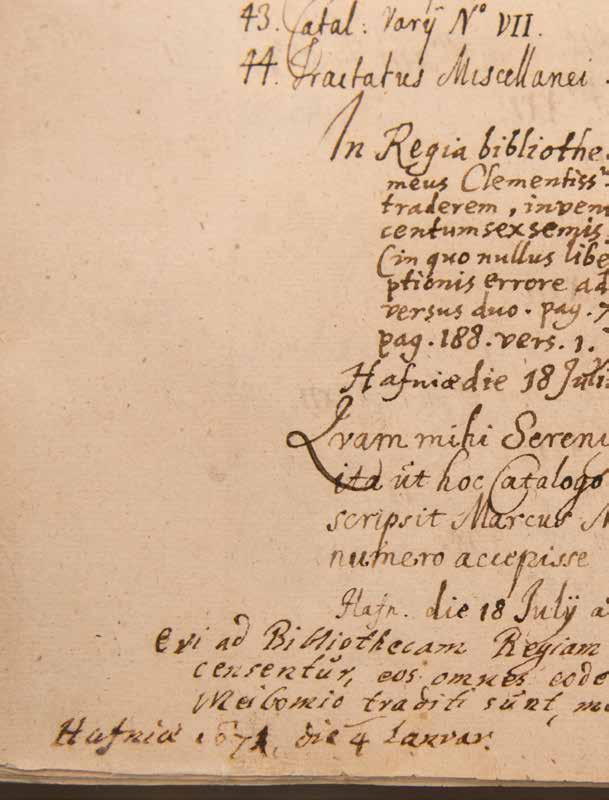 43. Catal: Varÿ N° VII.
44. Tractatus Miscellanei
In Regia bibliothe
meus Clementiss
traderem, inven
centum sex semis
(in quo nullus libe
ptionis errore ad
versus duo. pag. 7
pag. 188. vers. 1.
Hafniæ die 18 Julii
Qvam mihi Sereni
ita ut hoc Catalogo
scripsit Marcus M
numero accepisse
Hafn. die 18 Julÿ a
ad Bibliothecam Regiam
censentur, eos omnes eode
Meibomio traditi sunt, m
Hafniæ 1671, die 4 Ianvar.